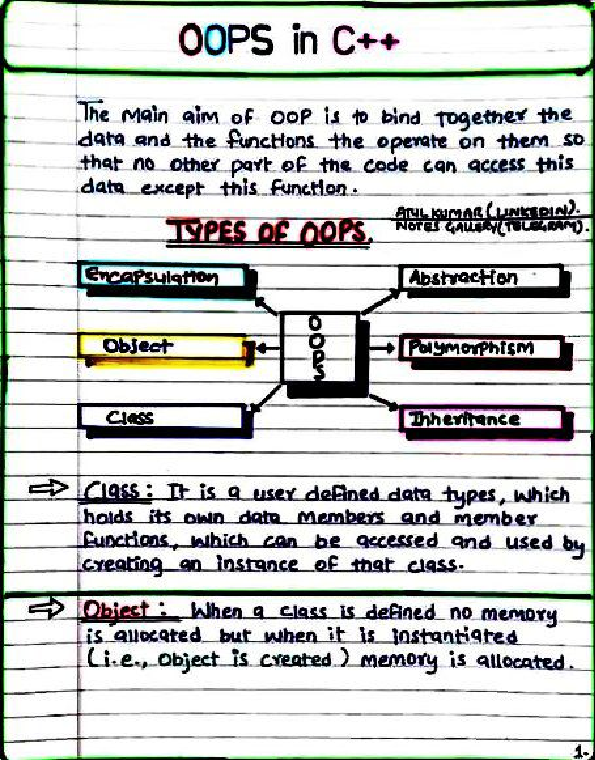 OOPS in C++
The Main aim of OOP is to bind together the
data and the functions the operate on them so
that no other part of the code can access this
data except this function.
ATUL KUMAR (LINKEDIN).
NOTES GALLERY(TELEGRAM).
TYPES OF OOPS.
Encapsulation
Abstraction
OOPS
Object
Polymorphism
Class
Inheritance
⇒ Class: It is a user defined data types, which
holds its own data Members and member
functions, which can be accessed and used by
creating an instance of that class.
⇒ Object: When a class is defined no memory
is allocated but when it is instantiated
(i.e., Object is created) memory is allocated.
1-